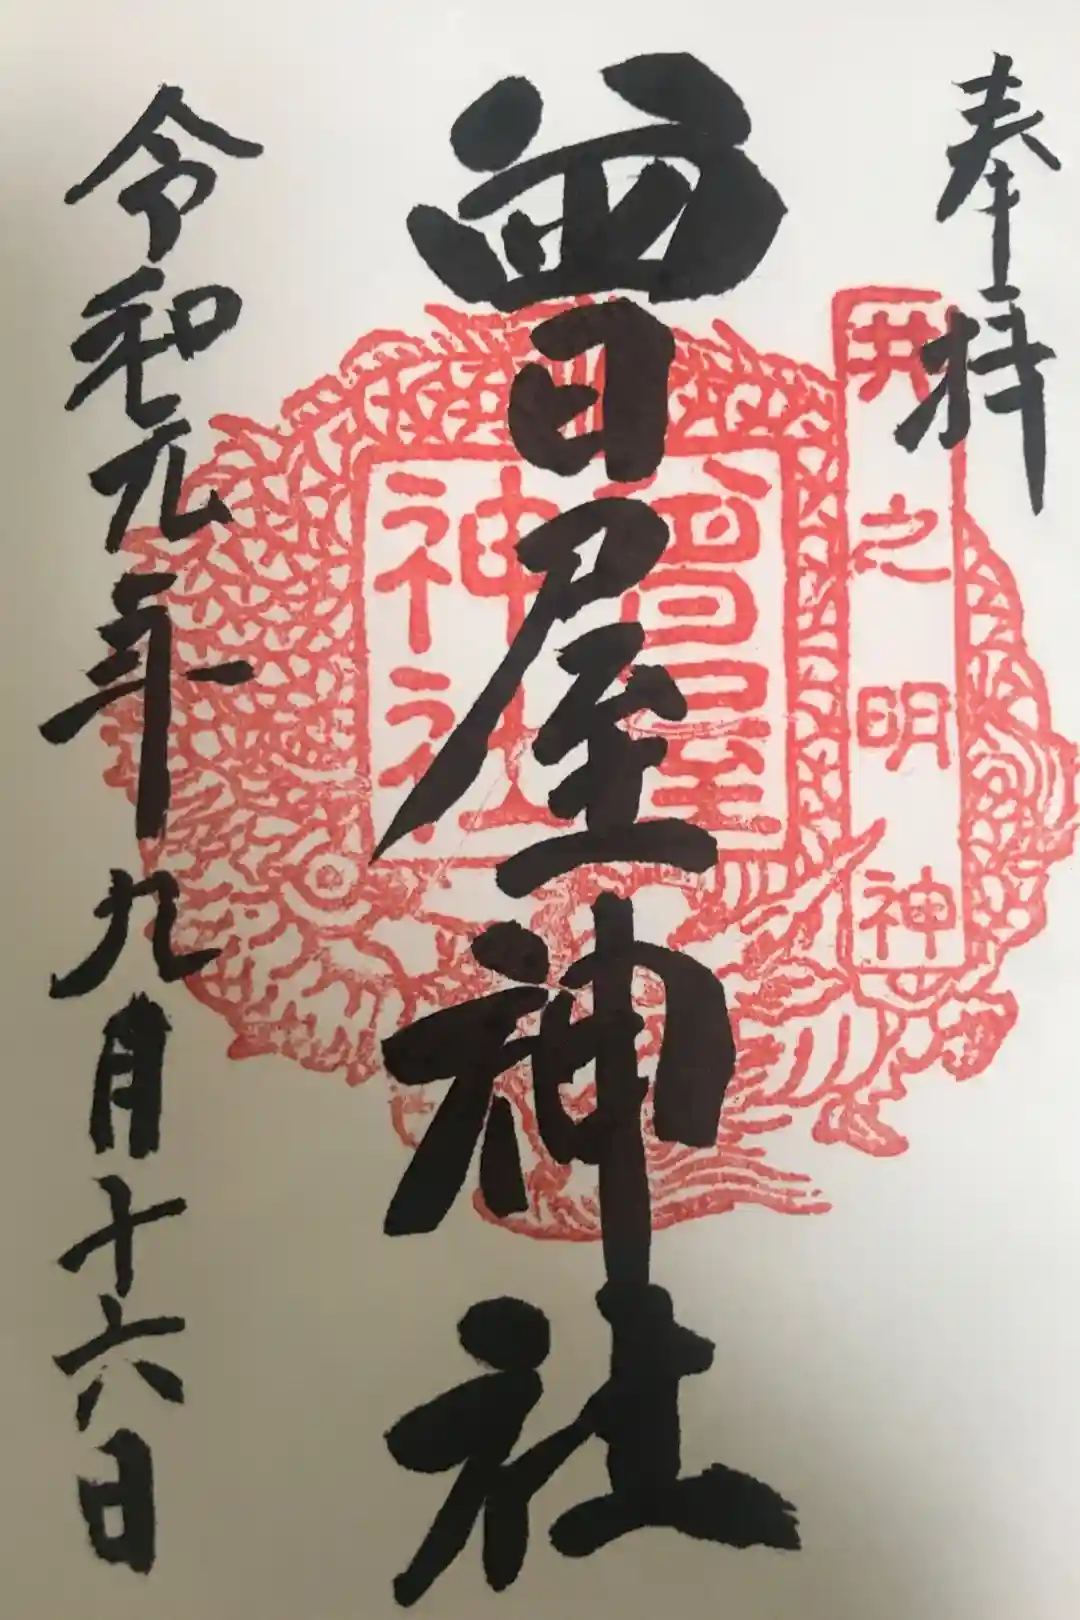 奉拝
井之明神
曽屋神社
曽屋
神社
令和元年九月十六日